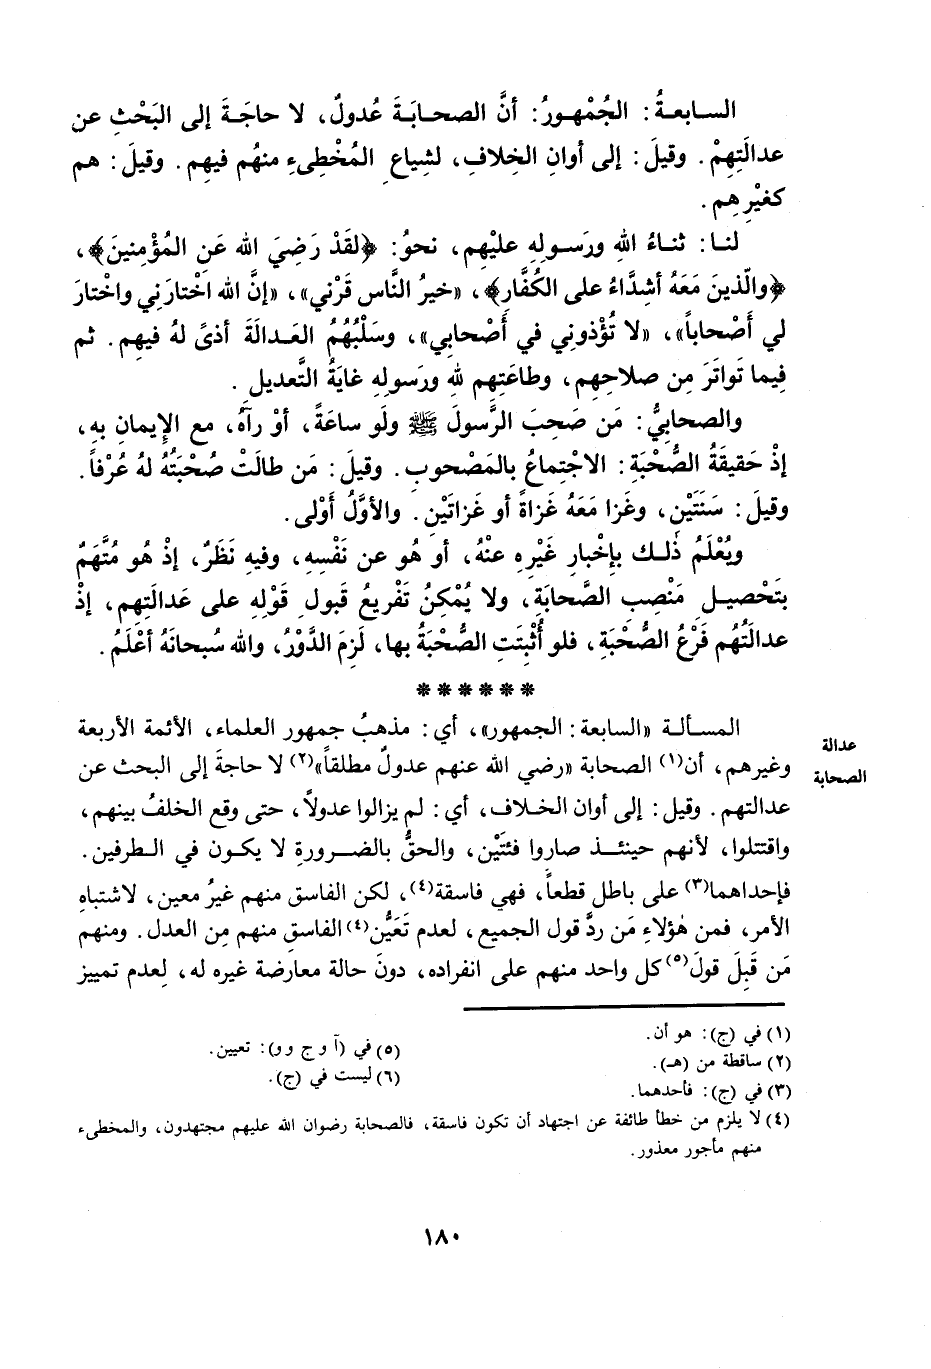 السابعةُ: الجُمْهورُ: أنَّ الصحابَةَ عُدولٌ، لا حاجَةَ إلى البَحْثِ عن
عدالَتِهِمْ. وقيلَ: إلى أوانِ الخِلافِ، لشِياعِ المُخْطِىءِ منهُم فيهِم. وقيلَ: هم
كغيْرِهِم.
لنا: ثناءُ اللهِ ورَسولِهِ عليْهِم، نحوُ: ﴿لقَدْ رَضِيَ الله عَنِ المُؤْمِنينَ﴾،
﴿والّذينَ مَعَهُ أشِدَّاءُ على الكُفَّارِ﴾، «خيرُ النَّاس قَرْني»، «إنَّ الله اخْتارَنِي واخْتارَ
لي أَصْحاباً»، «لا تُؤْذوني في أَصْحابي»، وسَلْبُهُمُ العَدالَةَ أذىً لهُ فيهِم. ثم
فِيما تَواتَرَ مِن صلاحِهِم، وطاعَتِهِم للهِ ورَسولِهِ غايَةُ التَّعديلِ.
والصحابيُّ: مَن صَحِبَ الرَّسولَ ﷺ ولَو ساعَةً، أوْ رآهُ، مع الإِيمانِ بهِ،
إذْ حَقيقَةُ الصُّحْبَةِ: الاجْتِماعُ بالمَصْحوبِ. وقيلَ: مَن طالَتْ صُحْبَتُهُ لهُ عُرْفاً.
وقيلَ: سَنَتَيْنِ، وغَزا مَعَهُ غَزاةً أو غَزاتَيْنِ. والأوَّلُ أوْلى.
ويُعْلَمُ ذٰلك بإخْبارِ غَيْرِهِ عنْهُ، أو هُو عن نَفْسِهِ، وفيهِ نَظَرٌ، إذْ هُو مُتَّهَمٌ
بتَحْصيلِ مَنْصِبِ الصَّحابَةِ، ولا يُمْكِنُ تَفْريعُ قَبولِ قَوْلِهِ على عَدالَتِهِم، إذْ
عدالَتُهُم فَرْعُ الصُّحْبَةِ، فلو أُثْبِتَتِ الصُّحْبَةُ بها، لَزِمَ الدَّوْرُ، والله سُبحانَهُ أعْلَمُ.
******
المسألة «السابعة: الجمهور»، أي: مذهبُ جمهور العلماء، الأئمة الأربعة
وغيرهم، أن(١) الصحابة «رضي الله عنهم عدولٌ مطلقاً»(٢) لا حاجةَ إلى البحث عن
عدالتهم. وقيل: إلى أوان الخلاف، أي: لم يزالوا عدولاً، حتى وقع الخلفُ بينهم،
واقتتلوا، لأنهم حينئذ صاروا فئتَيْن، والحقُّ بالضرورةِ لا يكون في الطرفين.
فإحداهما(٣) على باطلٍ قطعاً، فهي فاسقة(٤)، لكن الفاسق منهم غيرُ معين، لاشتباهِ
الأمر، فمن هٰؤلاءِ مَن ردَّ قول الجميع، لعدم تَعَيُّن(٤) الفاسقِ منهم مِن العدل. ومنهم
مَن قَبِلَ قولَ(٥) كل واحد منهم على انفراده، دونَ حالة معارضة غيره له، لِعدم تمييز
عدالة
الصحابة
(١) في (ج): هو أن.
(٢) ساقطة من (هـ).
(٣) في (ج): فأحدهما.
(٥) في (آ و ج و و): تعيين.
(٦) ليست في (ج).
(٤) لا يلزم من خطأ طائفة عن اجتهاد أن تكون فاسقة، فالصحابة رضوان الله عليهم مجتهدون، والمخطىء
منهم مأجور معذور.
١٨٠